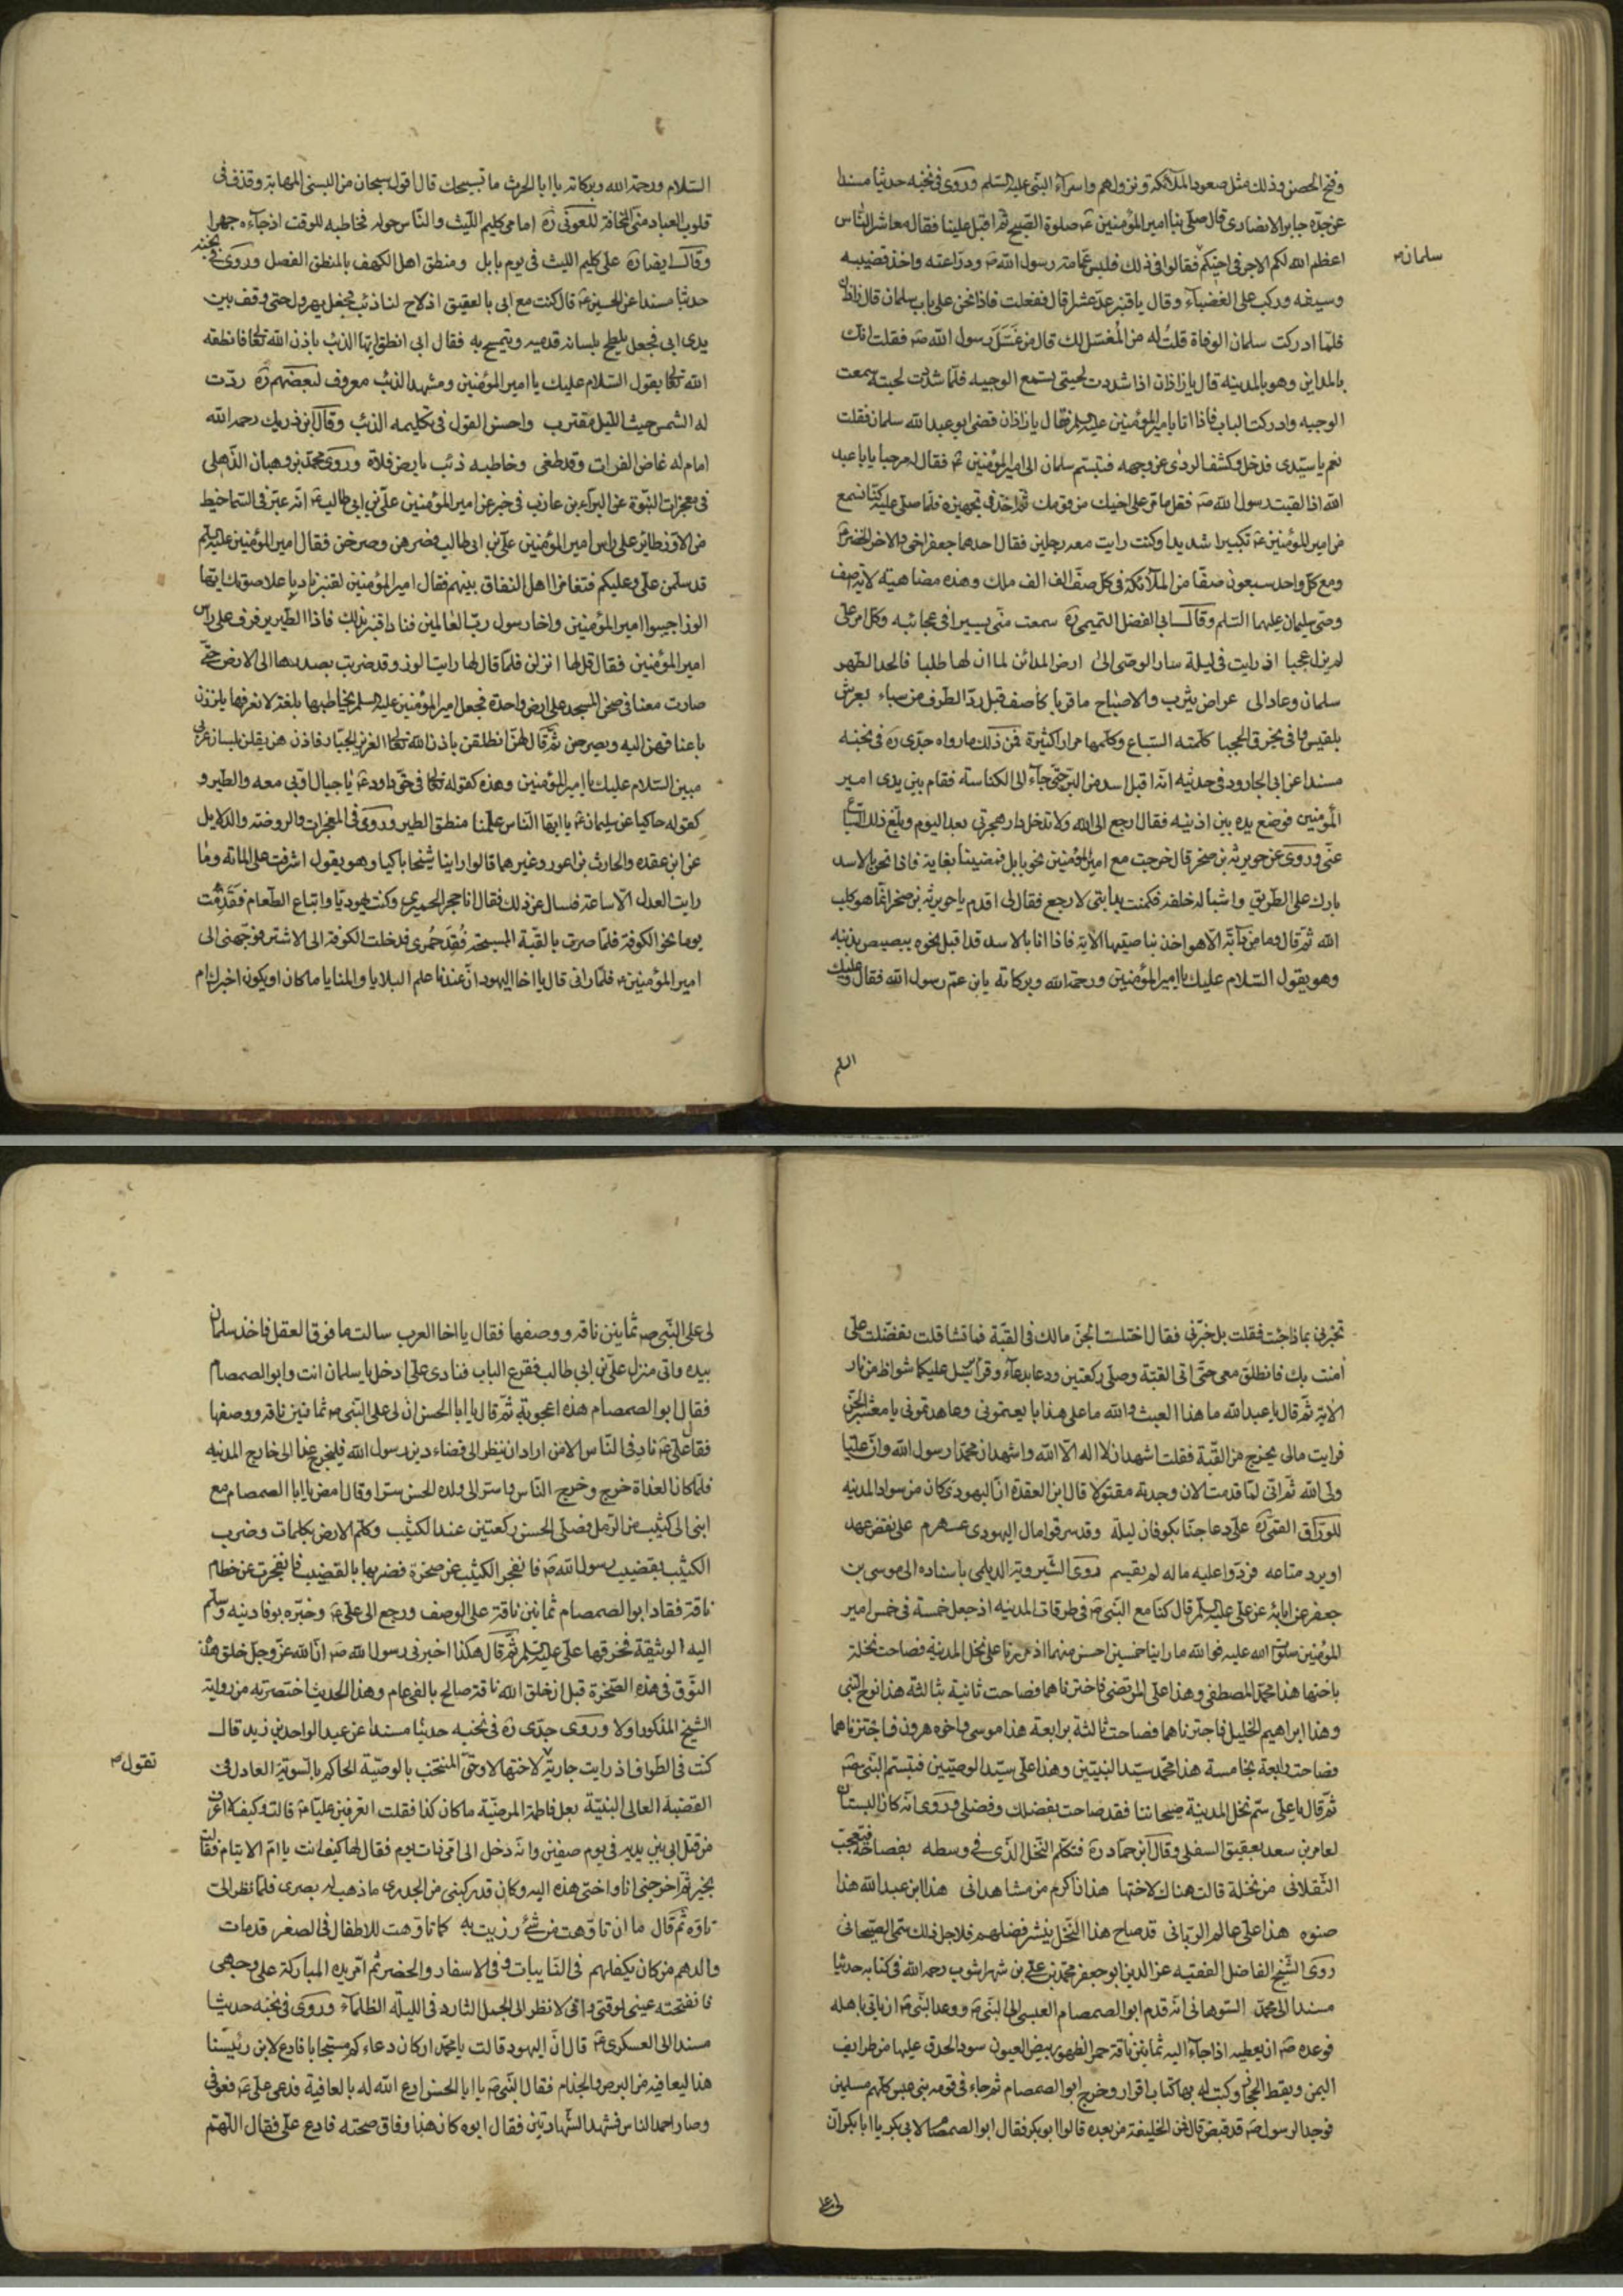 وفتح الحصن وذلك مثل صعود الملائكة ونزولهم واسراء النبى عليه السلم وروى فى نخبه حديثا مسندا
عن جده جابر الانصارى قال صلى بنا امير المؤمنين صلوة الصبح ثم اقبل علينا فقال معاشر الناس
اعظم الله لكم الاجر فى اخيكم فقالوا فى ذلك فلبس عمامة رسول الله ودراعته واخذ قضيبه
سلمان
وسيفه وركب على الغضباء وقال يا قنبر عد عشرا قال ففعلت فاذا نحن على باب سلمان قال زاذان
فلما ادركت سلمان الوفاة قلت له من المغسل لك قال من غسل رسول الله فقلت انك
بالمداين وهو بالمدينه قال يا زاذان اذا شددت لحيتى تسمع الوجبه فلما شددت لحيته سمعت
الوجبه وادركت الباب فاذا انا بامير المؤمنين عليه السلم فقال يا زاذان قضى ابو عبد الله سلمان فقلت
نعم يا سيدى فدخل وكشف الردى عن وجهه فتبسم سلمان الى امير المؤمنين فقال له مرحبا يا با عبد
الله اذا لقيت رسول الله فقل ما مر على اخيك من قومك ثم اخذ فى تجهيزه فلما صلى عليه كنا نسمع
من امير المؤمنين تكبيرا شديدا وكنت رايت معه رجلين فقال احدهما جعفر اخى والاخر الخضر
ومع كل واحد سبعون صفا من الملائكة فى كل صف الف الف ملك وهذه مضاهية لاية اصف
وصى سليمان عليهما السلم وقال ابى الفضل التميمى سمعت منى يسيرا فى عجائبه وكل امر على
لم يزل عجبا اذ رايت فى ليلة سار الوصى الى ارض المدائن لما ان لها طلبا فالحد الطهر
سلمان وعاد الى عراض يثرب والاصباح ما قربا كاصف قبل رد الطرف من سباء بعرش
بلقيس وافى بخرق الحجبا كلمته السباع وكلمها مرارا كثيرة فمن ذلك ما رواه جدى فى نخبه
مسندا عن ابى الجارود فى حديثه انه اقبل اسد من البر حتى جاء الى الكناسة فقام بين يدى امير
المؤمنين فوضع يده بين اذنيه فقال ارجع الى الله ولا تدخل دار هجرتى بعد اليوم وبلغ ذلك السباع
عنى وروى عن جويرية بن صخر قال خرجت مع امير المؤمنين نحو بابل فمضينا بغابة فاذا نحن بالاسد
بارك على الطريق واشباله خلفه فكمنت بدابتى لارجع فقال لى اقدم يا جويرية بن صخر انما هو كلب
الله ثم قال وما من دابة الا هو اخذ بناصيتها الاية فاذا انا بالاسد قد اقبل نحوه يبصبص بذنبه
وهو يقول السلام عليك يا امير المؤمنين ورحمة الله وبركاته يابن عم رسول الله فقال وعليك
السلم
السلام ورحمة الله وبركاته يا ابا الحرث ما تسبيحك قال اقول سبحان من البسنى المهابة وقذف فى
قلوب العباد منى المخافة للعونى امامى كليم الليث والناس حوله فخاطبه للوقت اذ جاءه جهرا
وقال ايضا على كليم الليث فى يوم بابل ومنطق اهل الكهف بالمنطق الفصل وروى فى نخبه
حديثا مسندا عن الحسين قال كنت مع ابى بالعقيق اذ لاح لنا ذئب فجعل يهرول حتى وقف بين
يدى ابى فجعل يلطع بلسانه قدميه ويتمسح به فقال ابى انطق ايها الذئب باذن الله تعالى فانطقه
الله تعالى يقول السلام عليك يا امير المؤمنين ومشهد الذئب معروف لبعضهم ردت
له الشمس حيث الليل مقترب واحسن القول فى تكليمه الذئب وقال ابن دريك رحمه الله
امام له غاض الفرات وقد طغى وخاطبه ذئب بارض فلاة وروى محمد بن وهبان الذهلى
فى معجزات النبوة عن البراء بن عازب فى خبر عن امير المؤمنين على بن ابى طالب انه عبر فى السما خيط
من الاوز طاير على راس امير المؤمنين على بن ابى طالب فصرصرن وصرخن فقال امير المؤمنين عليه السلم
قد سلمن على وعليكم فتغامز اهل النفاق بينهم فقال امير المؤمنين لقنبر ناد باعلا صوتك ايتها
الوز اجيبوا امير المؤمنين واخا رسول رب العالمين فنادى قنبر بذلك فاذا الطير يرفرف على راس
امير المؤمنين فقال قل لها انزلن فلما قال لها رايت الوز وقد ضربت بصدرها الى الارض حتى
صارت معنا فى صحن المسجد على ارض واحدة فجعل امير المؤمنين عليه السلم يخاطبها بلغة لا نعرفها يلززن
باعناقهن اليه ويصرخن ثم قال لهن انطلقن باذن الله تعالى العزيز الجبار فاذن هن يقلن بلسان عربى
مبين السلام عليك يا امير المؤمنين وهذه كقوله تعالى فى حق داود يا جبال اوبى معه والطير و
كقوله حاكيا عن سليمان يا ايها الناس علمنا منطق الطير وروى فى المعجزات والروضة والدلايل
عن ابن عقده والحارث بن اعور وغيرهما قالوا راينا شيخا باكيا وهو يقول اشرفت على المائة وما
رايت العدل الا ساعة فسال عن ذلك فقال انا حجر الحميرى وكنت يهوديا وابتاع الطعام فقدمت
يوما نحو الكوفة فلما صرت بالقبة المسبحة فقد حمرى فدخلت الكوفة الى الاشتر فوجهنى الى
امير المؤمنين فلما رانى قال يا اخا اليهود ان عندنا علم البلايا والمنايا ما كان او يكون اخبرك ام
تخبرنى بماذا جئت فقلت بل خبرنى فقال اختلست الجن مالك فى القبة فما تشا قلت تفضلت على
امنت بك فانطلق معى حتى اتى القبة وصلى ركعتين ودعا بدعاء وقرا يرسل عليكما شواظ من نار
الاية ثم قال يا عبد الله ما هذا العبث والله ما على هذا بايعتمونى وعاهدتمونى يا معشر الجن
فرايت مالى يخرج من القبة فقلت اشهد ان لا اله الا الله واشهد ان محمدا رسول الله وان عليا
ولى الله ثم انى لما قدمت الان وجدته مقتولا قال ابن العقدة ان اليهودى كان من سواد المدينه
للوراق القمى على دعا جنا بكوفان ليلة وقد سرقوا مال اليهودى عنهم على نقض عهد
او يرد متاعه فردوا عليه ماله لم يقيسم روى الشيرويه الديلمى باسناده الى موسى بن
جعفر عن ابائه عن على عليه السلم قال كنا مع النبى فى طرقات المدينه اذ جعل خمسة فى خمس امير
المؤمنين صلوات الله عليه فوالله ما راينا خمسين احسن منهما اذ مررنا على نخل المدينة فصاحت نخلة
باختها هذا محمد المصطفى وهذا على المرتضى فاجتزناهما فصاحت ثانية بثالثة هذا نوح النبى
وهذا ابراهيم الخليل فاجتزناهما فصاحت ثالثة برابعة هذا موسى واخوه هرون فاجتزناهما
فصاحت رابعة بخامسة هذا محمد سيد النبيين وهذا على سيد الوصيين فتبسم النبى
ثم قال يا على سم نخل المدينة صيحانيا فقد صاحت بفضلك وفضلى وروى انه كان البستان
لعامر بن سعد بعقيق السفلى وقال ابن حماد فتكلم النخل الذى فى وسطه بفصاحة فتعجب
الثقلانى من نخلة قالت هناك لاختها هذان اكرم من مشا هذانى هذا ابن عبد الله هذا
صنوه هذا على عالم الربانى قد صاح هذا النخل ينشر فضلهم فلاجل ذلك سمى الصيحانى
روى الشيخ الفاضل الفقيه عز الدين ابو جعفر محمد بن على بن شهراشوب رحمه الله فى كتابه حديثا
مسندا الى محمد السوهانى انه قدم ابو الصمصام العبسى الى النبى ووعد النبى ان ياتى باهله
فوعده ان يعطيه اذا جاء اليه ثمانين ناقة حمر الظهور بيض العيون سود الحدق عليها من طرايف
اليمن ونقط الحجاز وكتب له بها كتابا باقرار وخرج ابو الصمصام ثم جاء فى قومه بنى عبس كلهم مسلمين
فوجد الرسول قد قبض قال فمن الخليفة من بعده قالوا ابو بكر فقال ابو الصمصام لابى بكر يا ابا بكر ان
لى على
لى على النبى ثمانين ناقه ووصفها فقال يا اخا العرب سالت ما فوق العقل فاخذ سلمان
بيده واتى منزل على بن ابى طالب فقرع الباب فنادى على ادخل يا سلمان انت وابو الصمصام
فقال ابو الصمصام هذه اعجوبة ثم قال يا ابا الحسن ان لى على النبى ثمانين ناقه ووصفها
فقال على ناد فى الناس الا من اراد ان ينظر الى قضاء دين رسول الله فليخرج غدا الى خارج المدينه
فلما كان الغداة خرج وخرج الناس واسر الى ولده الحسن سرا وقال امض يا ابا الصمصام مع
ابنى الى كثيب من الرمل فصلى الحسن ركعتين عند الكثيب وكلم الارض بكلمات وضرب
الكثيب بقضيب رسول الله فانفجر الكثيب عن صخرة فضربها بالقضيب فانفجرت عن خطام
ناقة فقاد ابو الصمصام ثمانين ناقة على الوصف ورجع الى على وخبره بوفا دينه وسلم
اليه الوثيقة فخرقها على عليه السلم ثم قال هكذا اخبرنى رسول الله ان الله عز وجل خلق هذه
النوق فى هذه الصخرة قبل ان خلق الله ناقة صالح بالفى عام وهذا الحديث اختصرته من رواية
الشيخ المذكور اولا وروى جدى فى نخبه حديثا مسندا عن عبد الواحد بن زيد قال
كنت فى الطواف اذ رايت جارية لاختها لا وحق المنتجب بالوصية الحاكم بالسوية العادل فى
تقول
القضية العالى البنية بعل فاطمة المرضية ما كان كذا فقلت اتعرفين عليا قالت وكيف لا اعرف
من قتل ابى بين يديه فى يوم صفين وانه دخل الى امى ذات يوم فقال لها كيف انت يا ام الايتام فقالت
بخير ثم اخرجتنى انا واختى هذه اليه وكان قد ركبنى من الجدرى ما ذهب له بصرى فلما نظر الى
تاوه ثم قال ما ان تاوهت من شئ رزيت به كما تاوهت للاطفال فى الصغر قد مات
والدهم من كان يكفلهم فى النايبات وفى الاسفار والحضر ثم امر يده المباركة على وجهى
فانفتحت عينى لوقتى وانى لانظر الى الجمل الشارد فى الليلة الظلماء وروى فى نخبه حديثا
مسندا الى العسكرى قال ان اليهود قالت يا محمد ان كان دعاءكم مستجابا فادع لابن رئيسنا
هذا ليعافيه من البرص والجذام فقال النبى يا ابا الحسن ادع الله له بالعافية فدعى على فعوفى
وصار احمد الناس فشهد الشهادتين فقال ابوه كان هذا وفاق صحته فادع على فقال اللهم